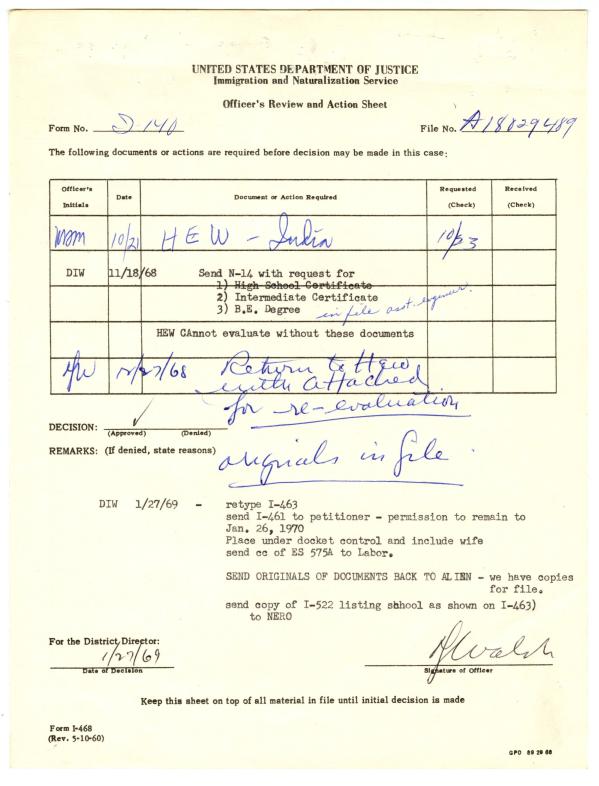 UNITED STATES DEPARTMENT OF JUSTICE
Immigration and Naturalization Service
Officer's Review and Action Sheet
Form No. I 140 File No. A18029489
The following documents or actions are required before decision may be made in this case:
Officer's Initials Date Document or Action Required Requested (Check) Received (Check)
10/21 HEW - India 10/23
DIW 11/18/68 Send N-14 with request for
1) High School Certificate
2) Intermediate Certificate
3) B.E. Degree in file asst. engineer.
HEW CAnnot evaluate without these documents
12/27/68 Return to Hew
with attached
for re-evaluation
DECISION: ✓
(Approved) (Denied)
REMARKS: (If denied, state reasons) originals in file.
DIW 1/27/69 - retype I-463
send I-461 to petitioner - permission to remain to
Jan. 26, 1970
Place under docket control and include wife
send cc of ES 575A to Labor.
SEND ORIGINALS OF DOCUMENTS BACK TO ALIEN - we have copies
for file.
send copy of I-522 listing school as shown on I-463)
to NERO
For the District Director:
1/27/69 DIWalsh
Date of Decision Signature of Officer
Keep this sheet on top of all material in file until initial decision is made
Form I-468
(Rev. 5-10-60)
GPO 89 29 68